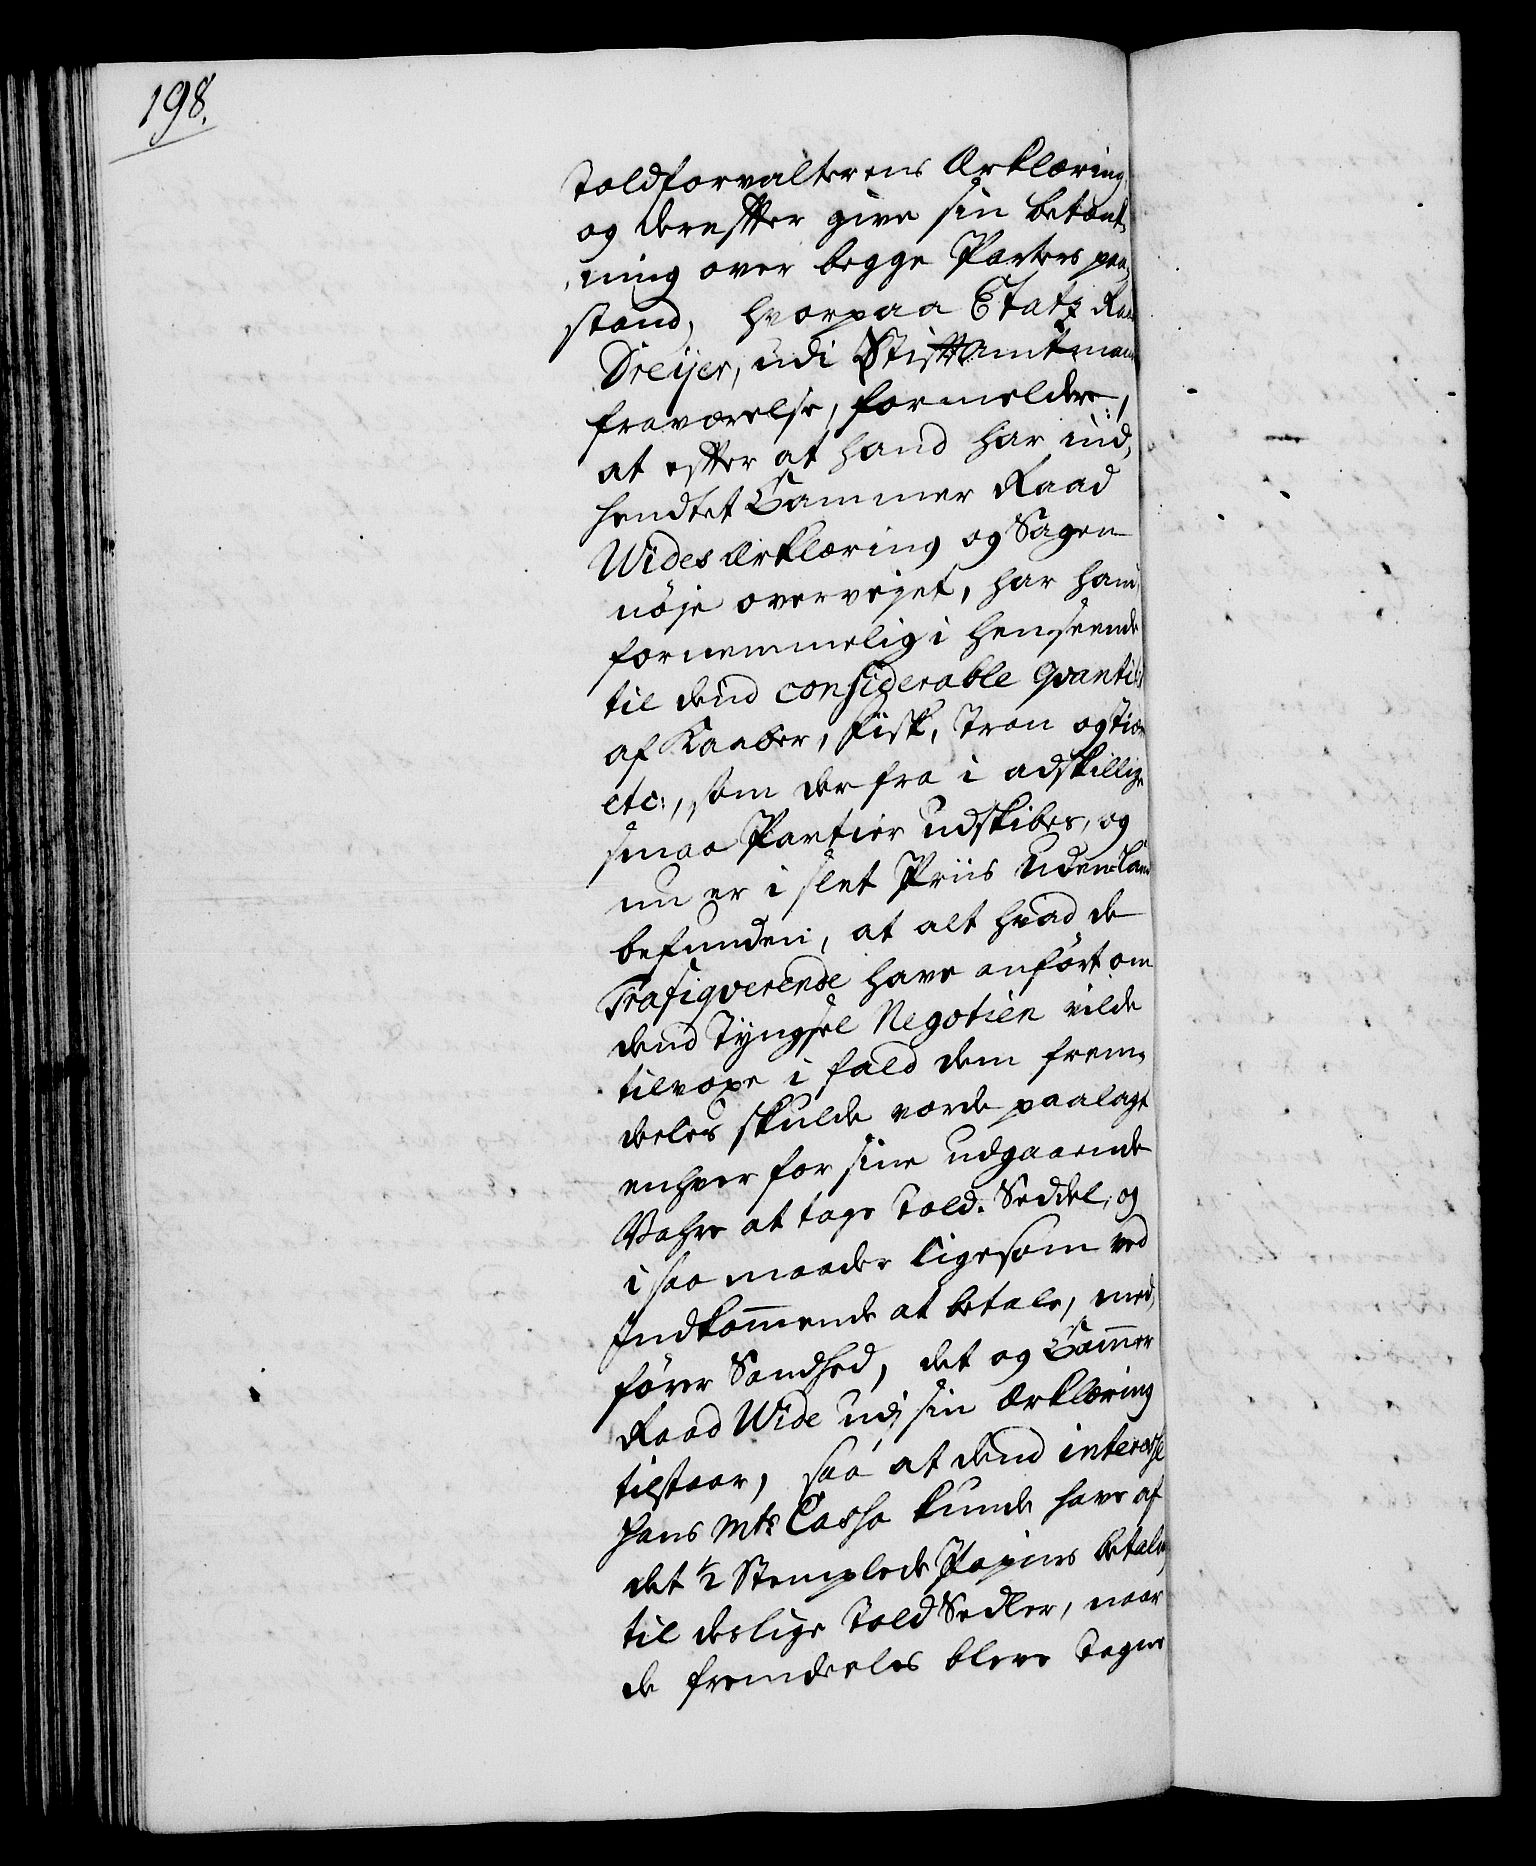 198.
Toldforvalterens Erklæring,
og derefter give sin betænk,
ning over begge Parters paa,
stand, hvorpaa Etatz Raad
Dreijer, udi Stiftamtmand
fraværelse, formelder,
at efter at hand har ind,
hendtet Cammer Raad
Wides Erklæring og Sagen
nøje overvejet, har hand
fornemmelig i henseende
til dend considerable Qvantit:
af Kaaber, Fisk, Tran og Tiære
etc:, som der fra i adskillige
smaa Partier udskibes, og
nu er i slet Priis uden Lands
befunden, at alt hvad de
Trafiqverende have anført om
dend Tyngsel Negotien vilde
tilvoxe i fald dem frem,
deeles skulde vorde paalagt
enhver for sine udgaaende
Vahre at tage Told-Seddel, og
i saa maader ligesom ved
Indkom̅ende at betale, med,
fører Sandhed, det og Cam̅er
Raad Wide udj sin Erklæring
tilstaar, saa at dend interesse
Hans Mts Cassa kunde have af
det ½ Stemplede Papiirs betaling
til deslige Told Sedler, naar
de fremdeeles bleve Tagne